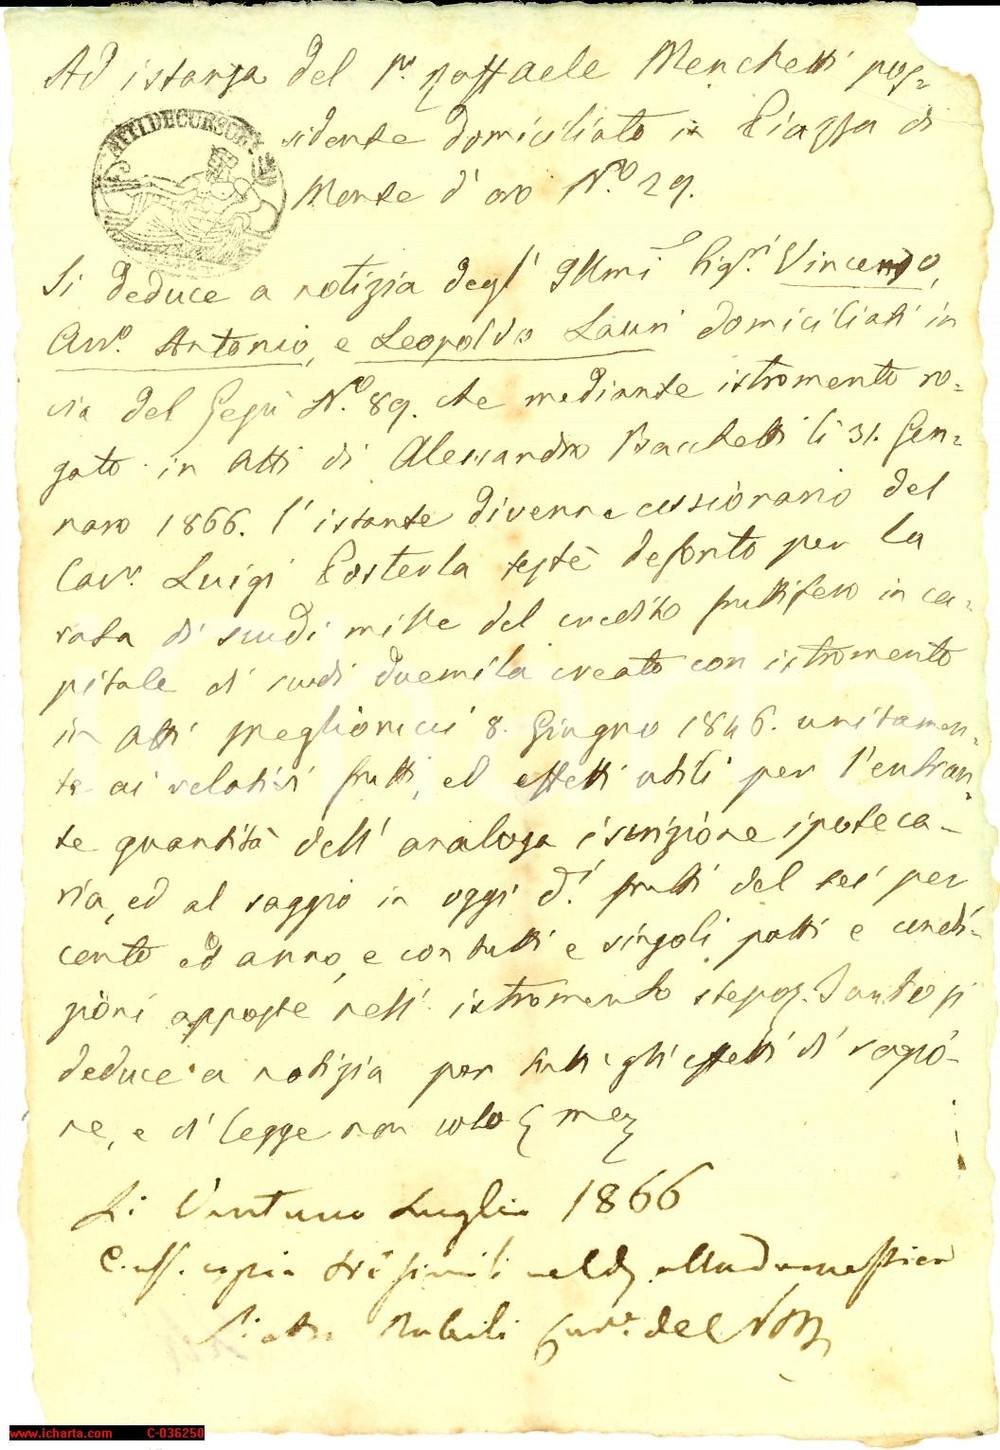 Ad istanza del Sr. Raffaele Menchetti pos=
ATTI DECURSU
sidente domiciliato in Piazza di
Monte d'oro N.º 29.
Si deduce a notizia degl' Illmi Sigri. Vincenzo,
Avv.º Antonio, e Leopoldo Lauri domiciliati in
via del Gesù N.º 89. che mediante istromento ro=
gato in Atti di Alessandro Bacchetti li 31. Gen=
naro 1866. l'istante divenne cessionario del
Cavr. Luigi Posterla testè defonto per la
rata di scudi mille del credito fruttifero in ca=
pitale di scudi duemila creato con istromento
in Atti 8. Giugno 1846. unitamen=
te ai relativi frutti, ed effetti utili per l'entran=
te quantità dell' analoga iscrizione ipoteca=
ria, ed al saggio in oggi d.i frutti del sei per
cento ed anno, e con tutti e singoli patti e condi=
zioni apposte nell' istromento stesso. Tanto si
deduce a notizia per tutti gli effetti di ragio=
ne, e di legge non solo
Li Ventuno Luglio 1866
copia simili
del
www.icharta.com C-036250